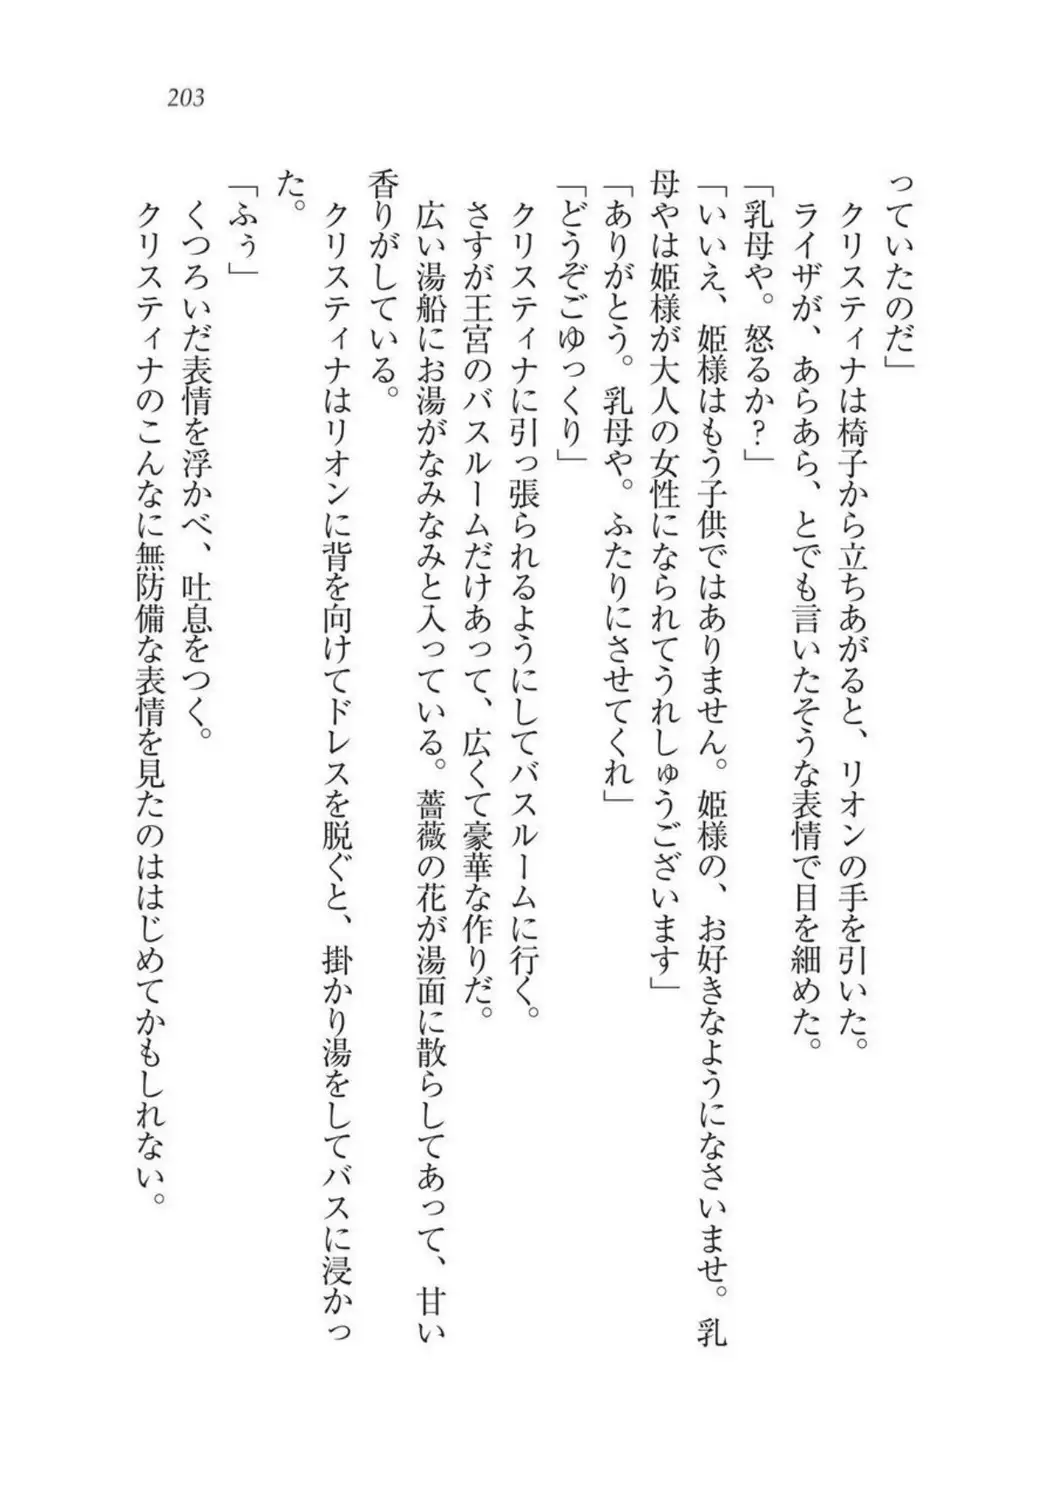 203
っていたのだ」
クリスティナは椅子から立ちあがると、リオンの手を引いた。
ライザが、あらあら、とでも言いたそうな表情で目を細めた。
「乳母や。怒るか？」
「いいえ、姫様はもう子供ではありません。姫様の、お好きなようになさいませ。乳
母やは姫様が大人の女性になられてうれしゅうございます」
「ありがとう。乳母や。ふたりにさせてくれ」
「どうぞごゆっくり」
クリスティナに引っ張られるようにしてバスルームに行く。
さすが王宮のバスルームだけあって、広くて豪華な作りだ。
広い湯船にお湯がなみなみと入っている。薔薇の花が湯面に散らしてあって、甘い
香りがしている。
クリスティナはリオンに背を向けてドレスを脱ぐと、掛かり湯をしてバスに浸かっ
た。
「ふぅ」
くつろいだ表情を浮かべ、吐息をつく。
クリスティナのこんなに無防備な表情を見たのははじめてかもしれない。